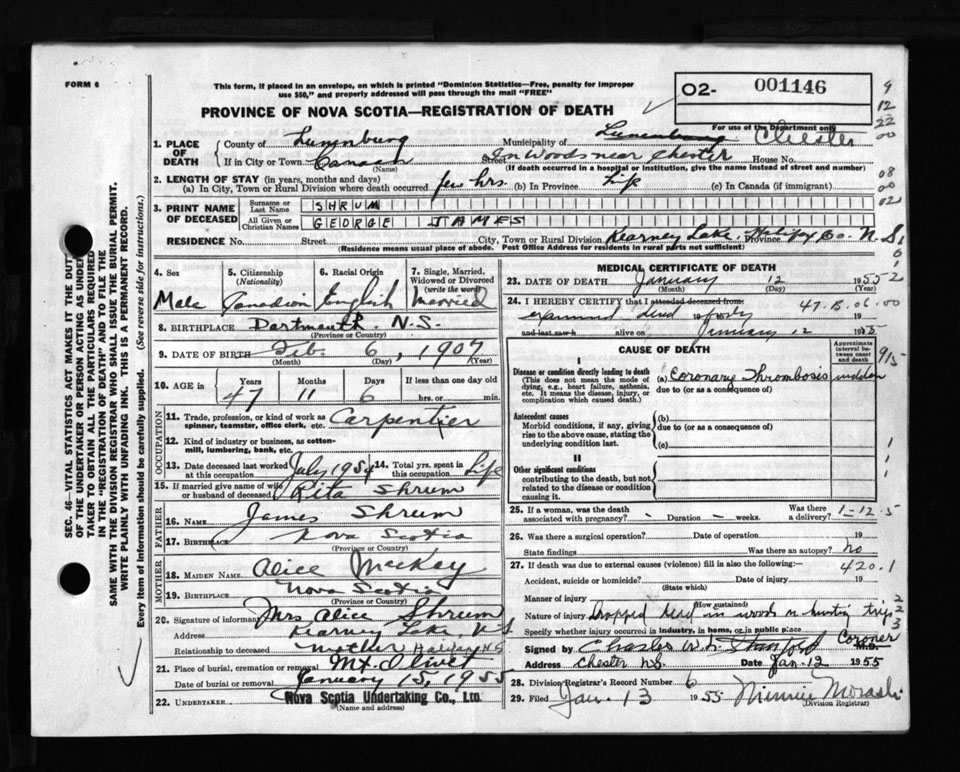 FORM 6
This form, if placed in an envelope, on which is printed "Dominion Statistics—Free, penalty for improper
use $50," and properly addressed will pass through the mail "FREE"
PROVINCE OF NOVA SCOTIA—REGISTRATION OF DEATH
O2- 001146
For use of the Department only
9
12
22
00
08
00
02
SEC. 46—VITAL STATISTICS ACT MAKES IT THE DUTY
OF THE UNDERTAKER OR PERSON ACTING AS UNDER-
TAKER TO OBTAIN ALL THE PARTICULARS REQUIRED
IN THE "REGISTRATION OF DEATH" AND TO FILE THE
SAME WITH THE DIVISION REGISTRAR WHO SHALL ISSUE THE BURIAL PERMIT.
WRITE PLAINLY WITH UNFADING INK. THIS IS A PERMANENT RECORD.
Every item of information should be carefully supplied. (See reverse side for instructions.)
1. PLACE OF DEATH County of Lunenburg Municipality of Lunenburg Chester
If in City or Town (Name) Street In Woods near Chester House No.
(If death occurred in a hospital or institution, give its name instead of street and number)
2. LENGTH OF STAY (in years, months and days)
(a) In City, Town or Rural Division where death occurred few hrs. (b) In Province Life (c) In Canada (if immigrant)
3. PRINT NAME OF DECEASED Surname or Last Name SHRUM
All Given or Christian Names GEORGE JAMES
RESIDENCE No. Street City, Town or Rural Division Kearney Lake, Halifax Co. Province N.S.
(Residence means usual place of abode. Post Office Address for residents in rural parts not sufficient)
4. Sex Male
5. Citizenship (Nationality) Canadian
6. Racial Origin English
7. Single, Married, Widowed or Divorced (write the word) Married
8. BIRTHPLACE Dartmouth. N.S.
(Province or Country)
9. DATE OF BIRTH Feb. 6, 1907
(Month) (Day) (Year)
10. AGE in Years 47 Months 11 Days 6 If less than one day old hrs. or min.
OCCUPATION
11. Trade, profession, or kind of work as spinner, teamster, office clerk, etc. Carpentier
12. Kind of industry or business, as cotton-mill, lumbering, bank, etc.
13. Date deceased last worked at this occupation July 1954 14. Total yrs. spent in this occupation Life
15. If married give name of wife or husband of deceased Rita Shrum
FATHER
16. NAME James Shrum
17. BIRTHPLACE Nova Scotia
(Province or Country)
MOTHER
18. MAIDEN NAME Alice MacKay
19. BIRTHPLACE Nova Scotia
(Province or Country)
20. Signature of informant Mrs Alice Shrum
Address Kearney Lake, N.S.
Relationship to deceased Mother Halifax N.S.
21. Place of burial, cremation or removal Mt. Olivet
Date of burial or removal January 15, 1955
22. UNDERTAKER Nova Scotia Undertaking Co., Ltd.
(Name and address)
MEDICAL CERTIFICATE OF DEATH
23. DATE OF DEATH January 12 1955
(Month) (Day) (Year)
24. I HEREBY CERTIFY that I attended deceased from: 47.B.06.00
examined dead body 19
and last saw alive on January 12 1955
CAUSE OF DEATH
Approximate interval between onset and death
I
Disease or condition directly leading to death (a) Coronary Thrombosis
(This does not mean the mode of dying, e.g., heart failure, asthenia, etc. It means the disease, injury, or complication which caused death.)
due to (or as a consequence of)
Antecedent causes (b)
Morbid conditions, if any, giving rise to the above cause, stating the underlying condition last.
due to (or as a consequence of)
(c)
II
Other significant conditions
contributing to the death, but not related to the disease or condition causing it.
25. If a woman, was the death associated with pregnancy? - Duration - weeks. Was there a delivery? 1-12-5
26. Was there a surgical operation? Date of operation 19
State findings Was there an autopsy? no
27. If death was due to external causes (violence) fill in also the following:— 420.1
Accident, suicide or homicide? Date of injury 19
(State which)
Manner of injury
(How sustained)
Nature of injury Dropped dead in woods on hunting trip
Specify whether injury occurred in industry, in home, or in public place
Signed by Charles W. Stanford Coroner M.D.
Address Chester N.S. Date Jan-12 1955
28. Division Registrar's Record Number 6
29. Filed Jan. 13 1955 Minnie
(Division Registrar)